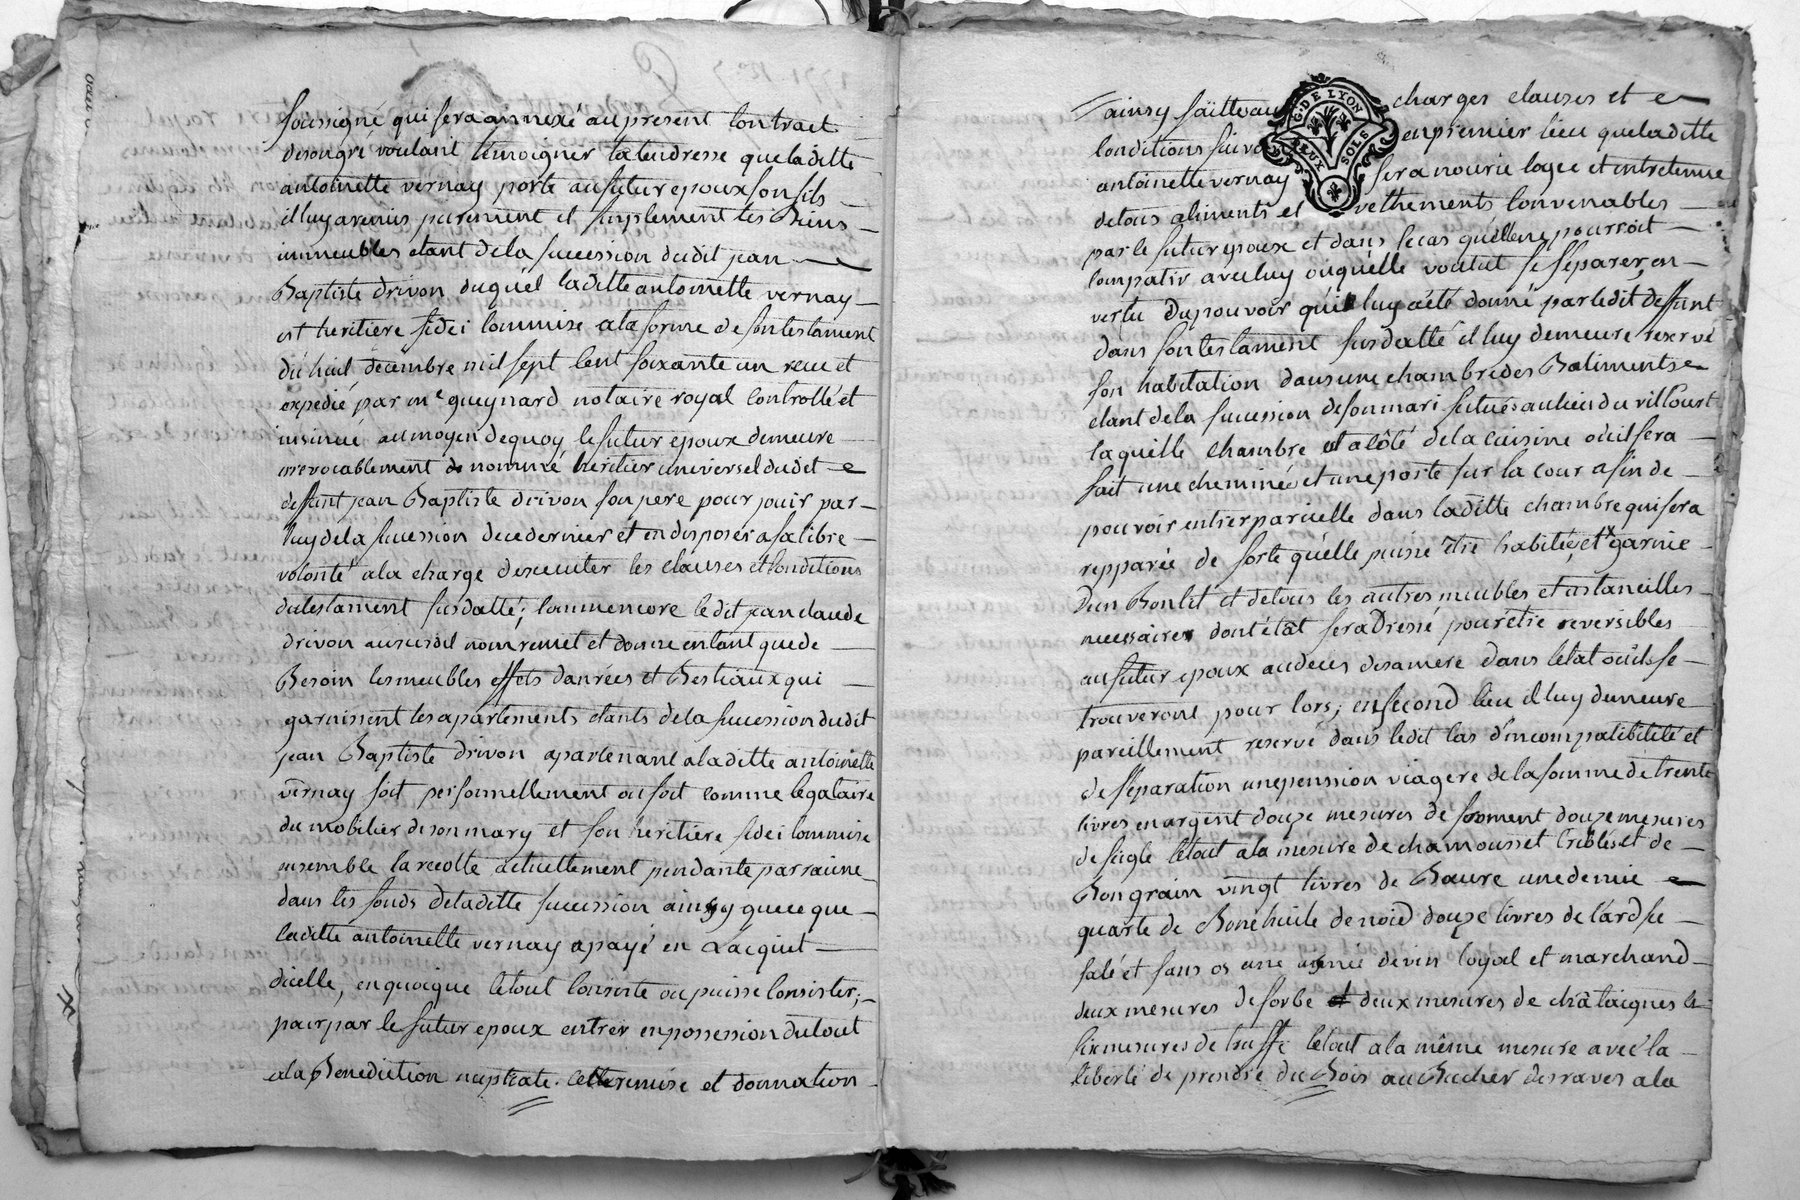 soussigné qui sera annexé au present Contract
de son gré voulant temoigner la tendresse que laditte
antoinette vernay porte au futur epoux son fils
il luy a remis purement et simplement les Biens
immeubles etant de la succession dudit jean
Baptiste drivon duquél laditte antoinette vernay
est heritiere fidei Commise a la forme de son testament
du huit décembre mil sept Cent soixante un recu et
expédié par me gueynard notaire royal Controllé et
insinué au moyen de quoy le futur epoux demeure
irrevocablement nommé heritier universel dudit
deffunt jean Baptiste drivon son pere pour jouir par
luy de la succession de ce dernier et en disposer a sa libre
volonté a la charge d'executer les clauses et Conditions
du testament susdatté; Comme encore ledit jean claude
drivon au susdit nom remet et donne en tant que de
Besoin les meubles effets danrées et Bestiaux qui
garnissent les apartements etants de la succession dudit
jean Baptiste drivon apartenant a laditte antoinette
vernay soit personnellement ou soit comme legataire
du mobilier de son mary et son heritiere fidei Commise
ensemble la recolte actuellement pendante par racine
dans les fonds de laditte succession ainsy que ce que
laditte antoinette vernay a payé en L'acquit
d'icelle, en quoique le tout Consiste ou puisse Consister;
pour par le futur epoux entrer en possession du tout
a la Benediction nuptiale. Cette remise et donnation
ainsy faitte aux charges clauses et
Conditions suiva en premier lieu que laditte
G. DE LYON
DEUX SOLS
antoinette vernay sera nourie logée et entretenue
de tous aliments et vethements Convenables
par le futur epoux et dans le cas qu'elle ne pourroit
Compatir avec luy ou qu'elle voulut se séparer, en
vertu du pouvoir qui luy a été donné par ledit deffunt
dans son testament susdatté il luy demeure reservé
son habitation dans une chambre des Batiments
etant de la succession de son mari situés au lieu du villours
laquelle chambre est a côté de la cuisine ou il sera
fait une cheminée et une porte sur la cour afin de
pouvoir entrer par icelle dans laditte chambre qui sera
repparée de sorte qu'elle puisse être habitée, et garnie
D'un Bon lit et de tous les autres meubles et ustancilles
necessaires dont état sera Dressé pour être reversibles
au futur epoux au deces de sa mere dans l'état ou ils se
trouveront pour lors; en second lieu il luy demeure
pareillement reservé dans ledit Cas d'incompatibilité et
de séparation une pension viagere de la somme de trente
livres en argent douze mesures de froment douze mesures
de seigle le tout a la mesure de chamousset Criblés et de
Bon grain vingt livres de Beure une demie
quarte de Bone huile de noid douze livres de l'ard
salé et sans os une asnée de vin loyal et marchand
deux mesures de sorbe deux mesures de châtaignes
six mesures de truffe le tout a la même mesure avec la
liberté de prendre du Bois au Bucher des raves a la